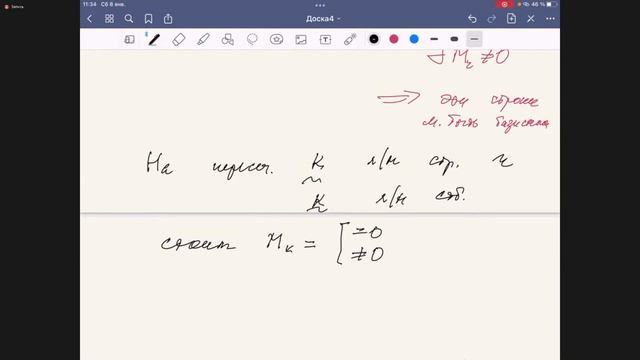 Запись
11:34 Сб 8 янв.
46 %
Доска4
∃ M ≠ 0
⟹ эти строки
м. быть базисными
На пересеч. K л/н стр. и
K л/н столб.
стоит Mₖ = [ = 0
≠ 0